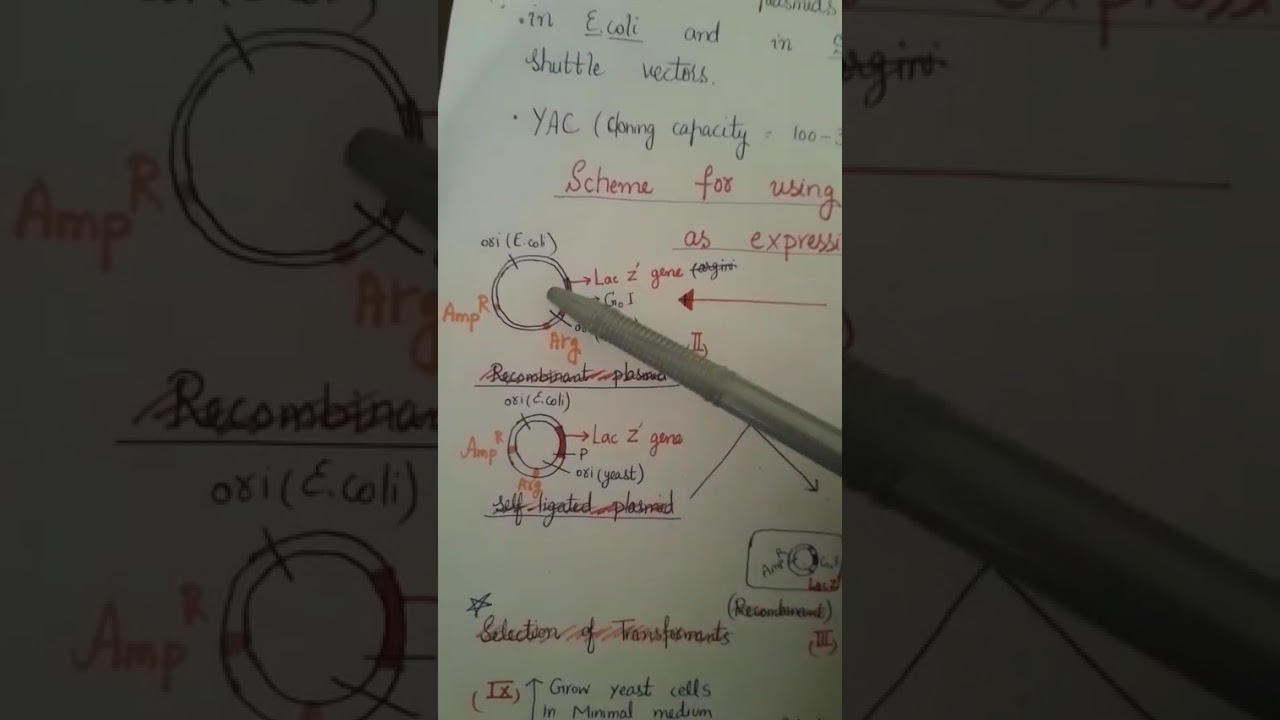 plasmids
• in E.coli and in
shuttle vectors.
• YAC (Cloning capacity = 100-3
Scheme for using
as expressi
ori (E.coli)
Lac Z' gene
G₀ I
Amp^R
Arg
(II)
Recombinant plasmid
ori (E.coli)
Amp^R
Lac Z' gene
P
ori (yeast)
Arg
self-ligated plasmid
Amp^R
Lac Z'
(Recombinant)
Selection of Transformants
(III)
(IX) ↑ Grow yeast cells
in Minimal medium